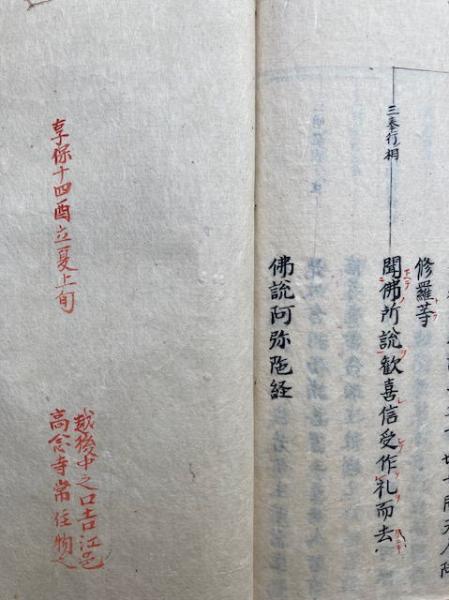 修羅等
三奉行相
聞佛所說歡喜信受作礼而去
佛說阿弥陁経
享保十四酉立夏上旬
越後中之口吉江邑
高念寺常住物